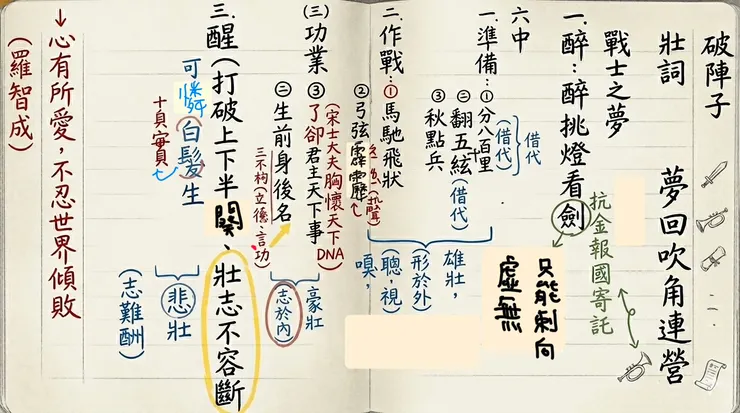 破陣子
壯詞
夢回吹角連營
戰士之夢
抗金報國寄託
一.醉:醉挑燈看劍
只能刺向
虛無
六中
一.準備:①分八百里(借代)
借代
㊁翻五絃(借代)
③秋點兵
雄壯,
形於外
(聽,視)
嗅,
二.作戰:①馬馳飛狀
②弓弦霹靂
(狀聲)
(三)功業③了卻君主天下事
(宋士大夫胸懷天下DNA
㊁生前身後名
三不朽(立德、言功
豪壯
志於內
三.醒(打破上下半闋、壯志不容斷
可憐白髮生
十貝實員
悲壯
(志難酬)
↓心有所愛,不忍世界傾敗
(羅智成)